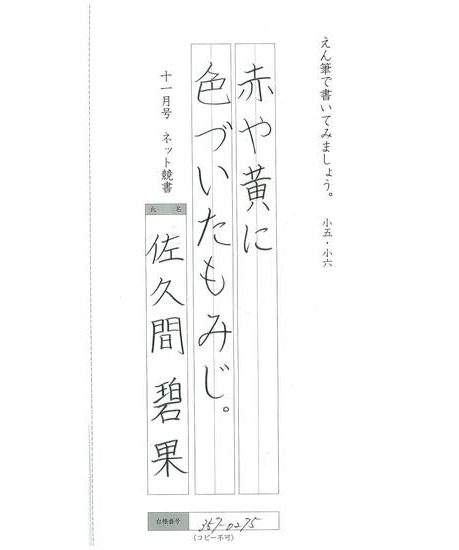 えん筆で書いてみましょう。 小五・小六
赤や黄に
色づいたもみじ。
十一月号 ネット競書
氏名
佐久間 碧果
台帳番号
357-0275
(コピー不可)